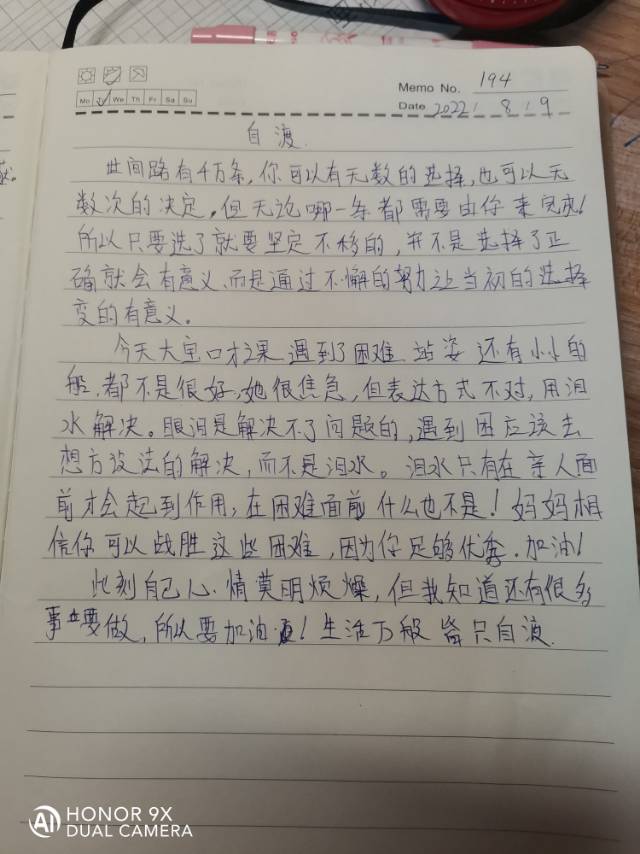 Mo We Th Fr Sa Su
Memo No. 194
Date 2022 / 8 / 9
自渡.
世间路有千万条,你可以有无数的选择,也可以无
数次的决定。但无论哪一条都需要由你来完成!
所以只要选了就要坚定不移的,并不是选择了正
确就会有意义、而是通过不懈的努力让当初的选择
变的有意义。
今天大宝口才课遇到了困难.站姿 还有小小的
都不是很好,她很焦急,但表达方式不对,用泪
水解决。眼泪是解决不了问题的,遇到困应该去
想方设法的解决,而不是泪水。泪水只有在亲人面
前才会起到作用,在困难面前什么也不是!妈妈相
信你可以战胜这些困难,因为你足够优秀.加油!
此刻自己心情莫明烦燥,但我知道还有很多
事要做,所以要加油!生活万般 皆只自渡.
HONOR 9X
AI DUAL CAMERA